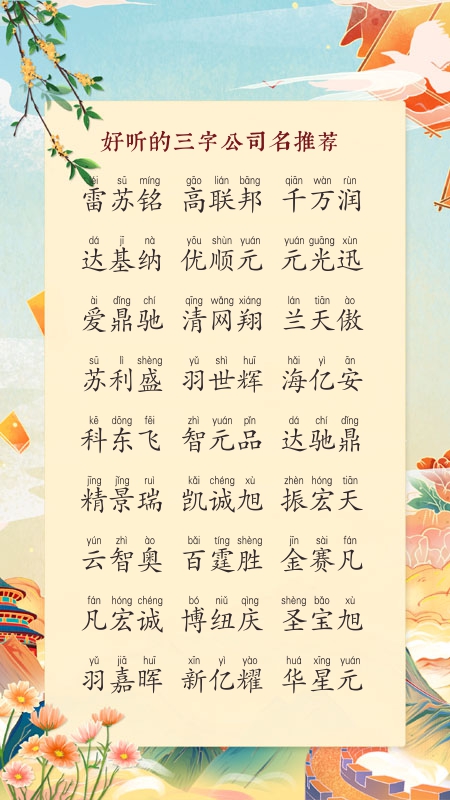 好听的三字公司名推荐
léi sū míng gāo lián bāng qiān wàn rùn
雷苏铭 高联邦 千万润
dá jī nà yōu shùn yuán yuán guāng xùn
达基纳 优顺元 元光迅
ài dǐng chí qīng wǎng xiáng lán tiān ào
爱鼎驰 清网翔 兰天傲
sū lì shèng yǔ shì huī hǎi yì ān
苏利盛 羽世辉 海亿安
kē dōng fēi zhì yuán pǐn dá chí dǐng
科东飞 智元品 达驰鼎
jīng jǐng ruì kǎi chéng xù zhèn hóng tiān
精景瑞 凯诚旭 振宏天
yún zhì ào bǎi tíng shèng jīn sài fán
云智奥 百霆胜 金赛凡
fán hóng chéng bó niǔ qìng shèng bǎo xù
凡宏诚 博纽庆 圣宝旭
yǔ jiā huī xīn yì yào huá xīng yuán
羽嘉晖 新亿耀 华星元